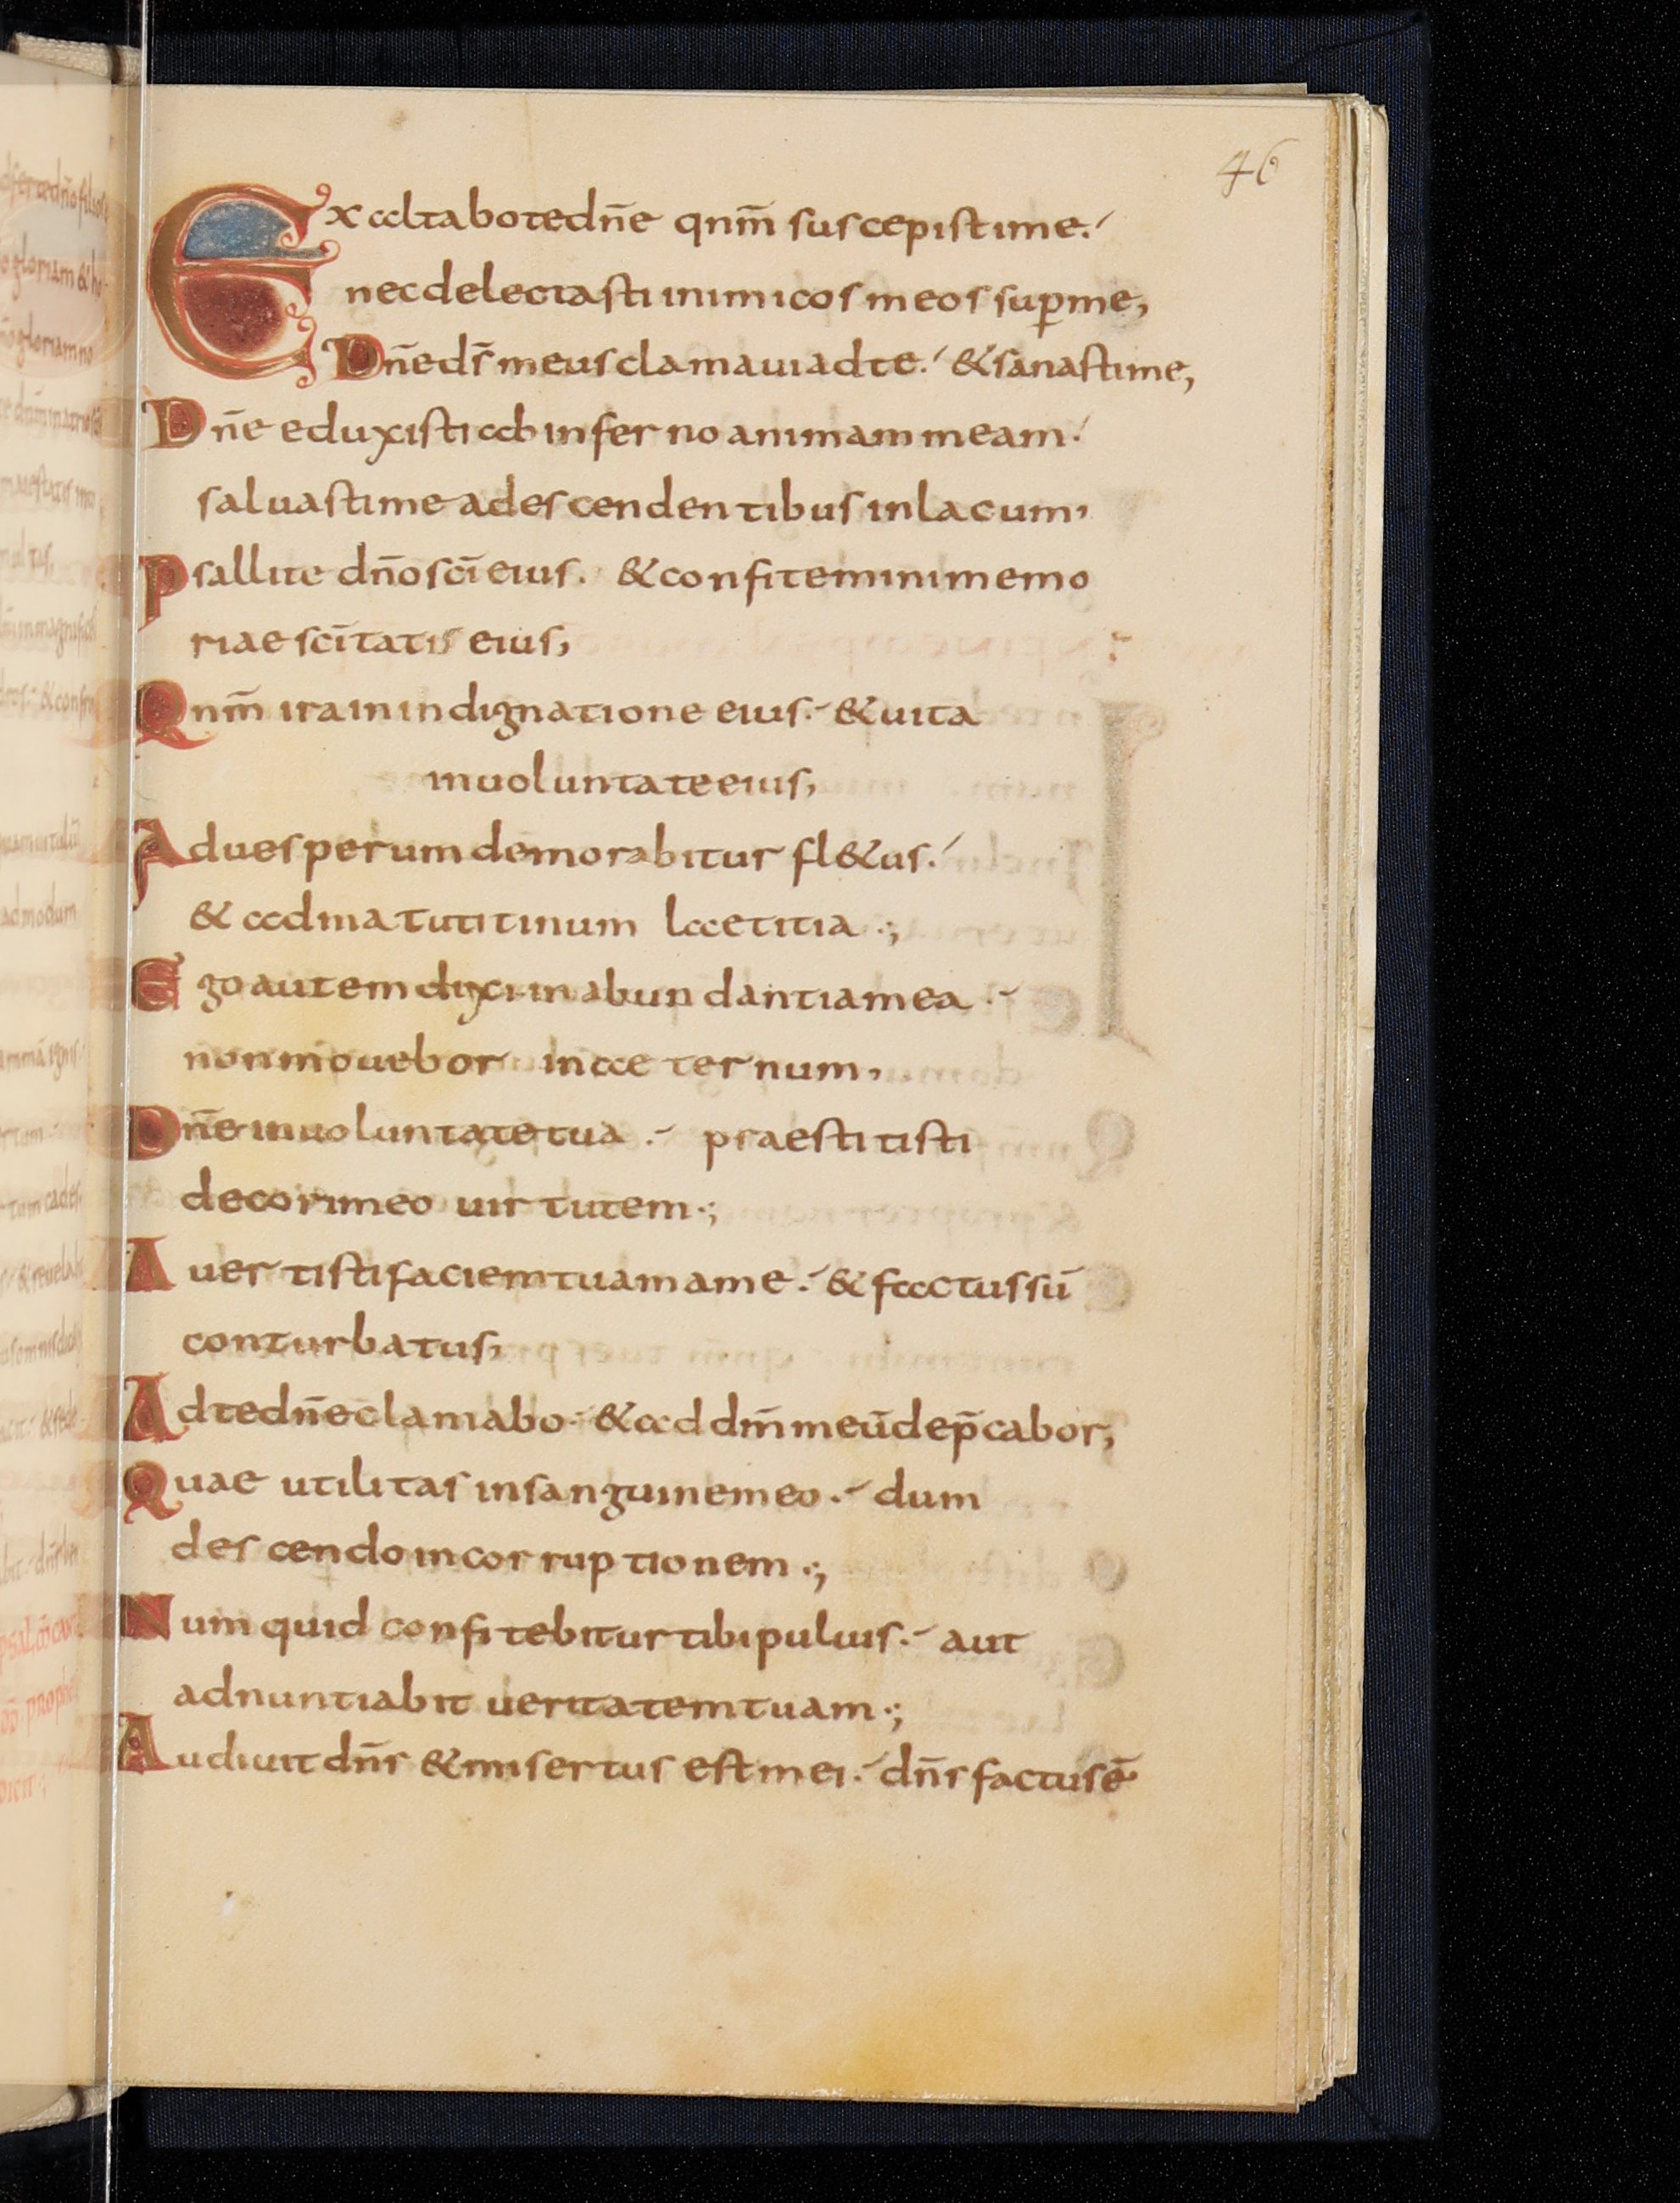 46
Exaltabo te dn̄e qnm̄ suscepisti me.
nec delectasti inimicos meos sup̄ me,
Dn̄e ds̄ meus clamaui ad te. & sanasti me,
Dn̄e eduxisti ab inferno animam meam.
saluasti me a descendentibus in lacum,
Psallite dn̄o sc̄i eius. & confitemini memo
riae sc̄itatis eius,
Qnm̄ ira in indignatione eius. & uita
in uoluntate eius,
Ad uesperum demorabitur fl&us.
& ad matutitinum laetitia .;
Ego autem dixi in abundantia mea .
non mouebor in aeternum,
Dn̄e in uoluntate tua . praestitisti
decori meo uirtutem .;
Auertisti faciem tuam a me. & factus sū
conturbatus,
Ad te dn̄e clamabo. & ad dm̄ meū dep̄cabor,
Quae utilitas in sanguine meo. dum
descendo in corruptionem .;
Numquid confitebitur tibi puluis. aut
adnuntiabit ueritatem tuam .;
Audiuit dn̄s & misertus est mei. dn̄s factus ē